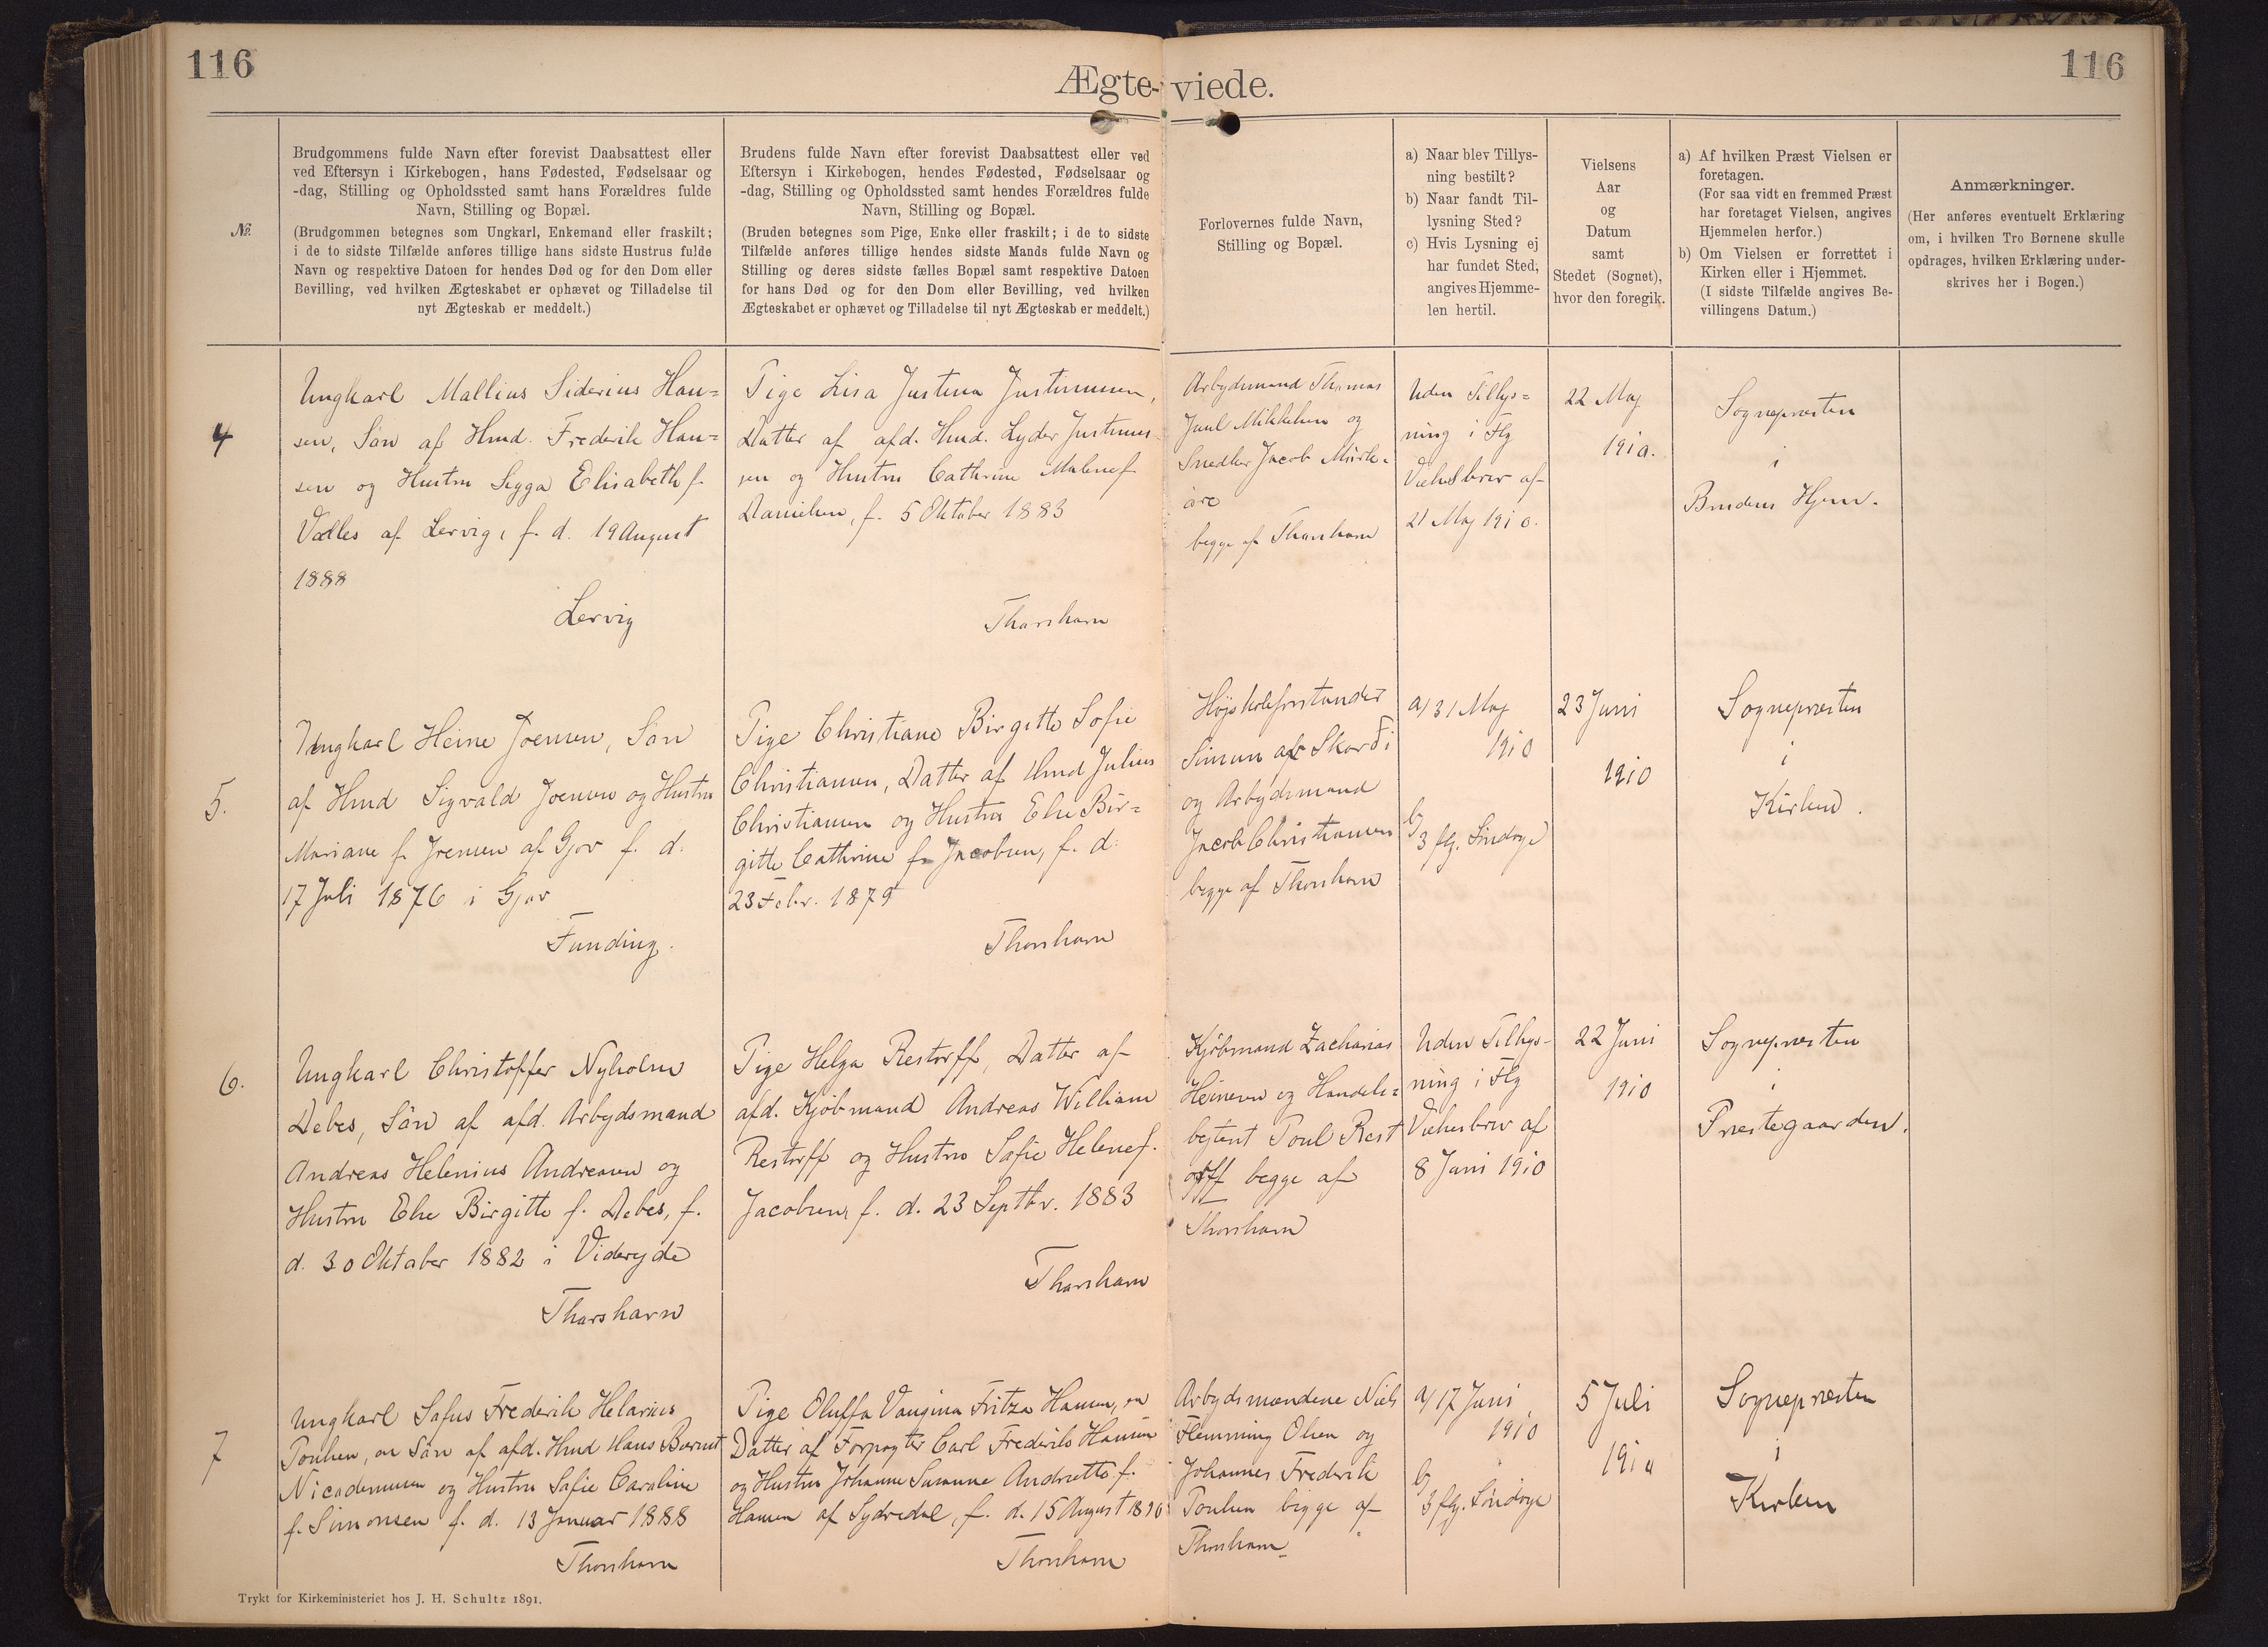 116
116
Ægte-viede.
№
Brudgommens fulde Navn efter forevist Daabsattest eller
ved Eftersyn i Kirkebogen, hans Fødested, Fødselsaar og
-dag, Stilling og Opholdssted samt hans Forældres fulde
Navn, Stilling og Bopæl.
(Brudgommen betegnes som Ungkarl, Enkemand eller fraskilt;
i de to sidste Tilfælde anføres tillige hans sidste Hustrus fulde
Navn og respektive Datoen for hendes Død og for den Dom eller
Bevilling, ved hvilken Ægteskabet er ophævet og Tilladelse til
nyt Ægteskab er meddelt.)
Brudens fulde Navn efter forevist Daabsattest eller ved
Eftersyn i Kirkebogen, hendes Fødested, Fødselsaar og
-dag, Stilling og Opholdssted samt hendes Forældres fulde
Navn, Stilling og Bopæl.
(Bruden betegnes som Pige, Enke eller fraskilt; i de to sidste
Tilfælde anføres tillige hendes sidste Mands fulde Navn og
Stilling og deres sidste fælles Bopæl samt respektive Datoen
for hans Død og for den Dom eller Bevilling, ved hvilken
Ægteskabet er ophævet og Tilladelse til nyt Ægteskab er meddelt.)
Forlovernes fulde Navn,
Stilling og Bopæl.
a) Naar blev Tillys-
ning bestilt?
b) Naar fandt Til-
lysning Sted?
c) Hvis Lysning ej
har fundet Sted,
angives Hjemme-
len hertil.
Vielsens
Aar
og
Datum
samt
Stedet (Sognet),
hvor den foregik.
a) Af hvilken Præst Vielsen er
foretagen.
(For saa vidt en fremmed Præst
har foretaget Vielsen, angives
Hjemmelen herfor.)
b) Om Vielsen er forrettet i
Kirken eller i Hjemmet.
(I sidste Tilfælde angives Be-
villingens Datum.)
Anmærkninger.
(Her anføres eventuelt Erklæring
om, i hvilken Tro Børnene skulle
opdrages, hvilken Erklæring under-
skrives her i Bogen.)
4
Ungkarl Mallius Siderius Han=
sen, Søn af Hmd. Frederik Han=
sen og Hustru Sigga Elisabeth f.
Valles af Lervig, f. d. 19 August
1888
Lervig
Pige Lisa Justina Justinussen,
Datter af afd. Hmd. Lyder Justinus-
sen og Hustru Cathrine Malene f.
Danielsen, f. 5 Oktober 1883
Thorshavn
Arbejdsmand Thomas
Juul Mikkelsen og
Snedker Jacob Mörk=
öre
begge af Thorshavn
Uden Tillys=
ning i Flg
Vielsesbrev af
21 Maj 1910.
22 Maj
1910.
Sognepræsten
i
Brudens Hjem.
5.
Ungkarl Heine Joensen, Søn
af Hmd Sigvald Joensen og Hustru
Mariane f. Joensen af Gjov f. d.
17 Juli 1876 i Gjov
Funding.
Pige Christiane Birgitte Sofie
Christiansen, Datter af Hmd Julius
Christiansen og Hustru Else Bir=
gitte Cathrine f. Jacobsen, f. d.
23 Febr. 1879
Thorshavn
Højskoleforstander
Simun af Skarði
og Arbejdsmand
Jacob Christiansen
begge af Thorshavn
a) 31 Maj
1910
b)
3 flg. Søndage
23 Juni
1910
Sognepræsten
i
Kirken.
6.
Ungkarl Christoffer Nyholm
Debes, Søn af afd. Arbejdsmand
Andreas Helenius Andreasen og
Hustru Else Birgitte f. Debes, f.
d. 30 Oktober 1882 i Viderejde
Thorshavn
Pige Helga Restorff, Datter af
afd. Kjöbmand Andreas William
Restorff og Hustru Sofie Helene f.
Jacobsen, f. d. 23 Septbr. 1883
Thorshavn
Kjöbmand Zacharias
Heinesen og Handels=
betjent Poul Rest
orff begge af
Thorshavn
Uden Tillys-
ning i Flg
Vielsesbrev af
8 Juni 1910
22 Juni
1910
Sognepræsten
i
Præstegaarden.
7
Ungkarl Sofus Frederik Helarius
Poulsen, en Søn af afd. Hmd Hans Berent
Nicodemussen og Hustru Sofie Caroline
f. Simonsen f. d. 13 Januar 1888
Thorshavn
Pige Oluffa Vaugina Fritza Hansen, en
Datter af Forpagter Carl Frederik Hansen
og Hustru Johanne Susanne Andrette f.
Hansen af Sydredal, f. d. 15 August 1890
Thorshavn
Arbejdsmændene Niels
Flemming Olsen og
Johannes Frederik
Poulsen begge af
Thorshavn
a) 17 Juni
1910
b)
3 flg. Søndage
5 Juli
1910
Sognepræsten
i
Kirken
Trykt for Kirkeministeriet hos J. H. Schultz 1891.